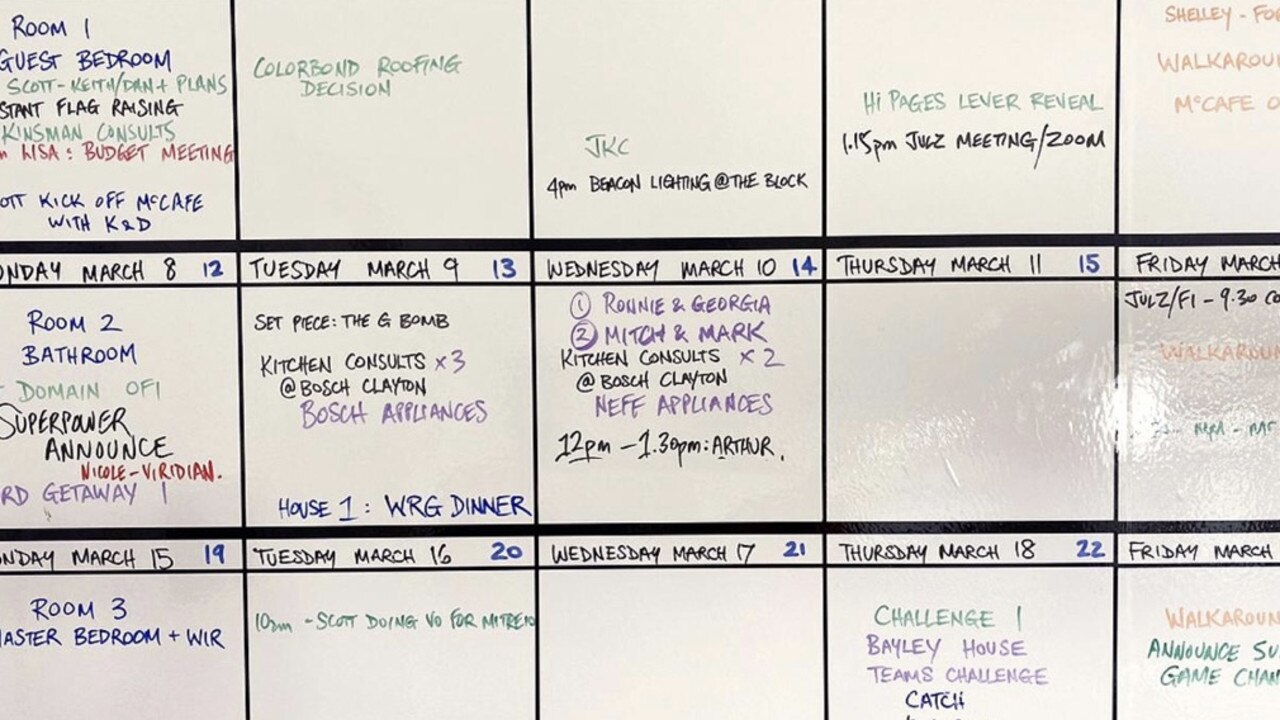 ROOM 1
GUEST BEDROOM
SCOTT - KEITH/DAN + PLANS
STANT FLAG RAISING
KINSMAN CONSULTS
LISA : BUDGET MEETING
OTT KICK OFF McCAFE
WITH K&D
COLORBOND ROOFING
DECISION
JKC
4pm BEACON LIGHTING @ THE BLOCK
Hi PAGES LEVER REVEAL
1.15pm JULZ MEETING/ZOOM
SHELLEY - FO
WALKAROU
McCAFE O
ONDAY MARCH 8 12
ROOM 2
BATHROOM
DOMAIN OFI
SUPERPOWER
ANNOUNCE
NICOLE - VIRIDIAN.
RD GETAWAY 1
TUESDAY MARCH 9 13
SET PIECE: THE G BOMB
KITCHEN CONSULTS x3
@ BOSCH CLAYTON
BOSCH APPLIANCES
HOUSE 1 : WRG DINNER
WEDNESDAY MARCH 10 14
① RONNIE & GEORGIA
② MITCH & MARK
KITCHEN CONSULTS x2
@ BOSCH CLAYTON
NEFF APPLIANCES
12pm - 1.30pm: ARTHUR.
THURSDAY MARCH 11 15
FRIDAY MARCH
JULZ/FI - 9.30 CO
WALKAROUN
ONDAY MARCH 15 19
ROOM 3
MASTER BEDROOM + WIR
TUESDAY MARCH 16 20
10am - SCOTT DOING VO FOR MITRE10
WEDNESDAY MARCH 17 21
THURSDAY MARCH 18 22
CHALLENGE 1
BAYLEY HOUSE
TEAMS CHALLENGE
CATCH
FRIDAY MARCH
WALKAROUN
ANNOUNCE SU
GAME CHAN